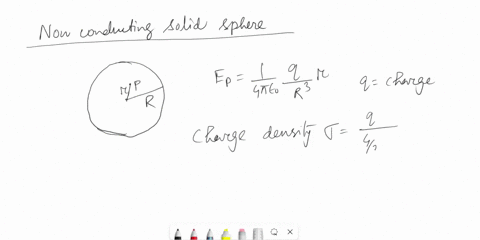 Non conducting solid sphere
r/P
R
E_P = 1/4πε₀ q/R³ r    q = charge
charge density σ = q/4/